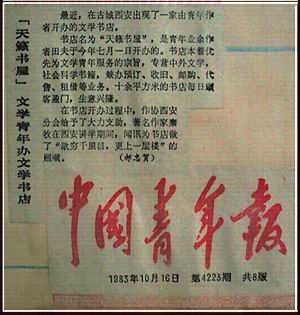 「天籁书屋」文学青年办文学书店
最近，在古城西安出现了一家由青年作
者开办的文学书店。
书店名为“天籁书屋”，是青年业余作
者田夫于今年七月一日开办的。书店本着优
先为文学青年服务的宗旨，专营中外文学、
社会科学书籍，兼办预订、收旧、邮购、代
售、租借等业务。十余平方米的书店每日顾
客盈门，生意兴隆。
在书店开办过程中，作协西安
分会给予了大力支助，著名作家秦
牧在西安讲学期间，闻讯为书店做
了“欲穷千里目，更上一层楼”的
题词。（郝志贺）
中国青年报
1983年10月16日 第4223期 共8版